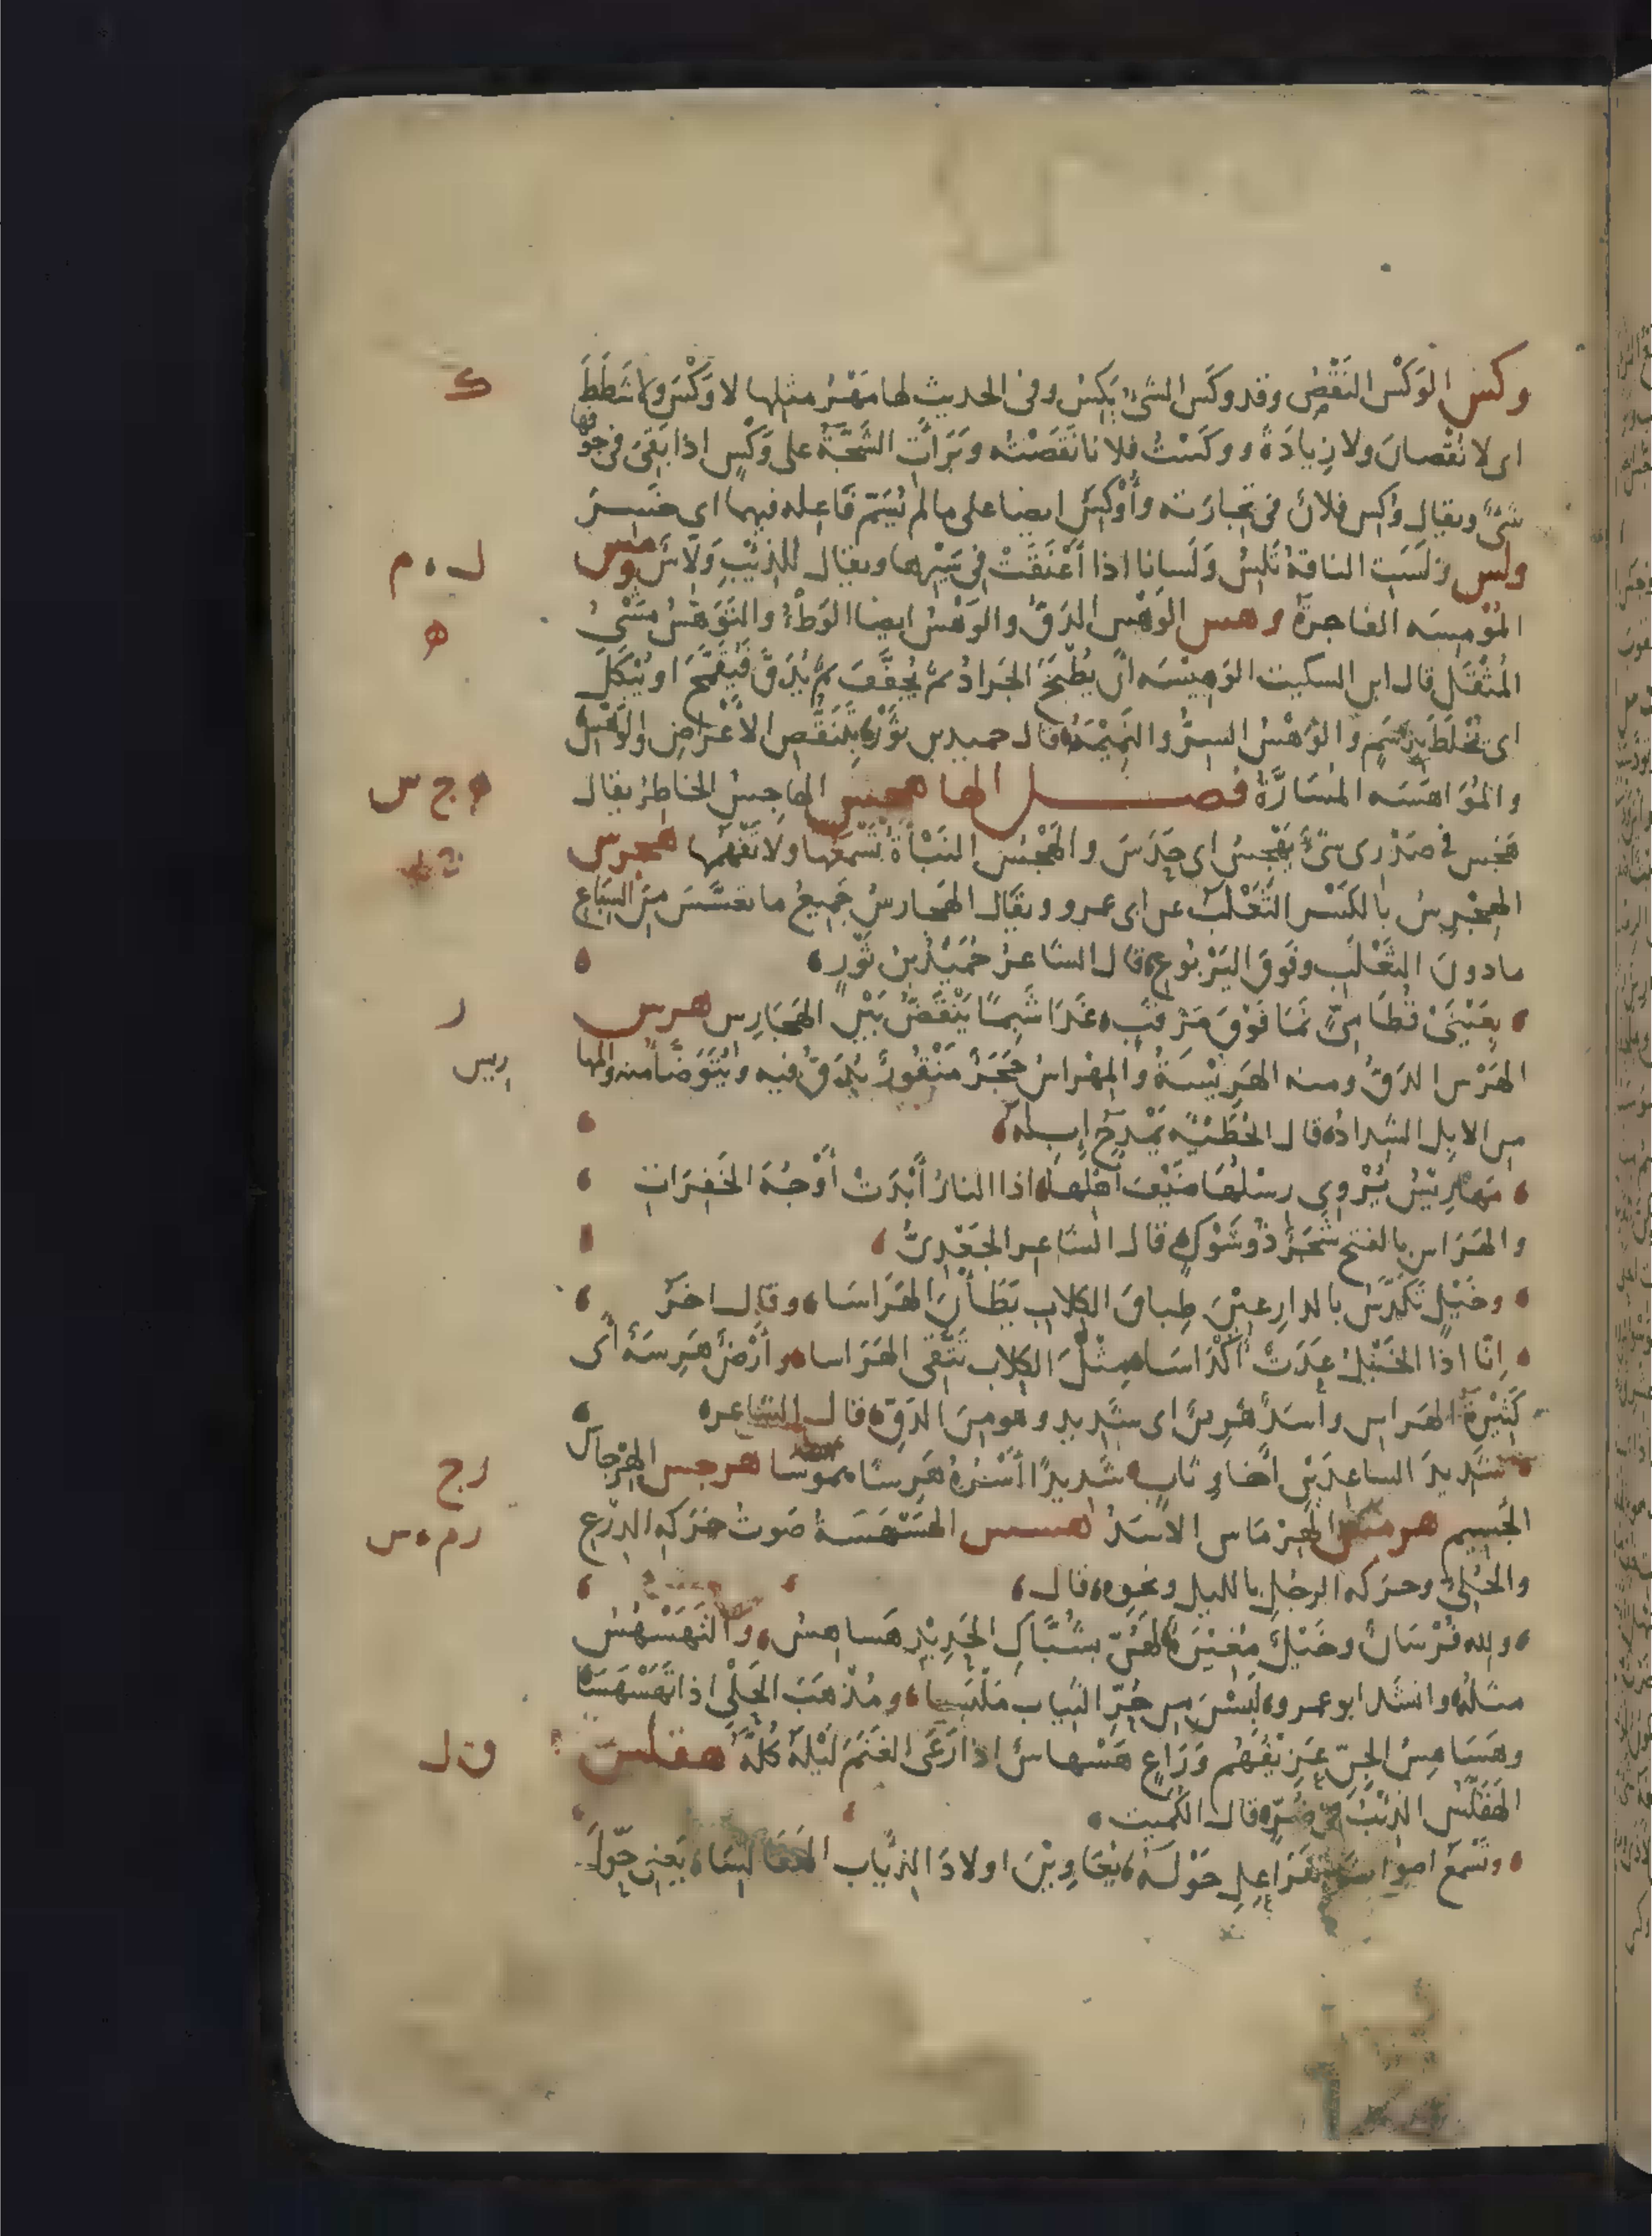 وكس الوَكْس النَقْصُ وقد وكَس الشئُ يَكِسُ وفى الحديث لها مَهْرُ مثلها لا وَكْسَ ولا شَطَطَ
اى لا نُقْصانَ ولا زِيادَةَ ووكَسْتُ فلانا نَقَصْتُه وبَرَأَتِ الشَجَّةُ على وَكْسٍ اذا بَقِىَ فى جوفها
شئٌ ويقال وُكِس فلانٌ فى تجارته وأُوكِسَ ايضا على ما لم يُسَمَّ فاعله فيهما اى خَسِرَ
ولس وَلَسَتِ الناقة تَلِسُ وَلَسانا اذا أَعْنَقَتْ فى سَيْرها ويقال للذِئْبِ وَلّاسٌ ومس
المُوْمِسَه الفاجرة وهس الوَهْس الدَقُّ والوَهْسُ ايضا الوَطْءُ والتَوَهُّسُ مَشْىُ
المُثْقَل قال ابن السكيت الوَهِيْسَه أن يُطْبَخَ الجَرادُ ثمَّ يُجَفَّفَ ثمَّ يُدَقَّ فَيُقْمَحَ او يُبْكَلَ
اى يُخْلَطَ بِدَسَمٍ والوَهْسُ السِرُّ والنَمِيْمَةُ قال حميد بن ثَوْر بِتَنَقُّصِ الأعْراضِ والوَهْسِ
والمُوَاهَسَه المُسَارَّةُ فصل الها هجس الهاجِسُ الخاطِرُ يقال
هَجَس فى صَدْرِى شئٌ يَهْجِسُ اى حَدَسَ والهَجْسُ النَبْأَةُ تَسْمَعُها ولا تَفْهَمُها هجرس
الهِجْرِسُ بالكَسْر الثَعْلَبُ عن ابى عمرو ويقال الهَجارسُ جَمِيعُ ما تعسَّسَ مِنَ السِباعِ
ما دونَ الثَعْلَبِ وفَوقَ اليَرْبُوعِ قال الشاعرُ حُمَيْدُ بنُ ثَوْرٍ
بِعَيْنَىْ قُطَامِىٍّ نَمَا فَوْقَ مَرْقَبٍ غَدَا شَبِمًا يَنْقَضُّ بَيْنَ الهَجَارِسِ هرس
الهَرْس الدَقُّ ومنه الهَرِيْسَةُ والمِهْراسُ حَجَرٌ مَنْقُورٌ يُدَقُّ فيه ويُتَوَضَّأُ منه والمها
ريس
من الابِل الشِدادُ قال الحُطَيْئَه يَمْدَحُ إبِلَه
مَهَارِيْسُ يُرْوِى رِسْلُهَا ضَيْفَ أهْلِها اذا النارُ أَبْدَتْ أَوْجُهَ الخَفِرَاتِ
والهَرَاس بالفتح شَجَرٌ ذُو شَوْكٍ قال الشاعر الجَعْدِىُّ
وخَيْلٍ تَكَدَّسُ بالدارِعِيْنَ طِباقَ الكِلابِ يَطَأْنَ الهَرَاسَا وقال اخَرُ
إنّا اذا الخَيْلُ عَدَتْ أكْدَاسَا مِثْلَ الكِلاب تَتَّقِى الهَرَاسا وأَرْضٌ هَرِسَةٌ أى
كَثِيْرَةُ الهَراسِ وأسَدٌ هَرِسٌ اى شَدِيد وهو مِنَ الدَقِّ قال الشاعر
شَدِيدَ الساعِدَيْنِ أخا وِثَابٍ شَديدًا أَسْرُهُ هَرِسًا هموسا هرجس الهِرْجاس
الجَسِيم هرمس الهِرْمَاس الأسَدُ هسس الهَسْهَسَةُ صَوتُ حَرَكَهِ الدِرْعِ
والحُلِىِّ وحرَكه الرجُلِ بالليل ونحوِه قال
ولله فُرْسَانٌ وخَيْلٌ مُغِيْرَةٌ لهُنَّ بشُبَّاكِ الحَدِيْدِ هَساهِسُ والتَهَسْهُسُ
مثلُه وانشد ابو عمرو لَبِسْنَ مِن حُرِّ الثِيابِ مَلْبَسا ومُذْهَبَ الحَلْىِ اذا تَهَسْهَسَا
وهَسَاهِسُ الجِنّ عَزِيْفُهُم ورَاعٍ هَسْهاسٌ اذا رَعَى الغَنَمَ لَيْلَهُ كُلَّهُ هقلس
الهَقَلَّسُ الذِئْبُ فى ضُرٍّ قال الكُمَيت
وتَسْمَعُ اصواتَ الفَرَاعِلِ حَوْلَه يُعَاوِيْنَ اولادَ الذِيابِ الهَقَالِسَا يَعنِى حَوْلَ